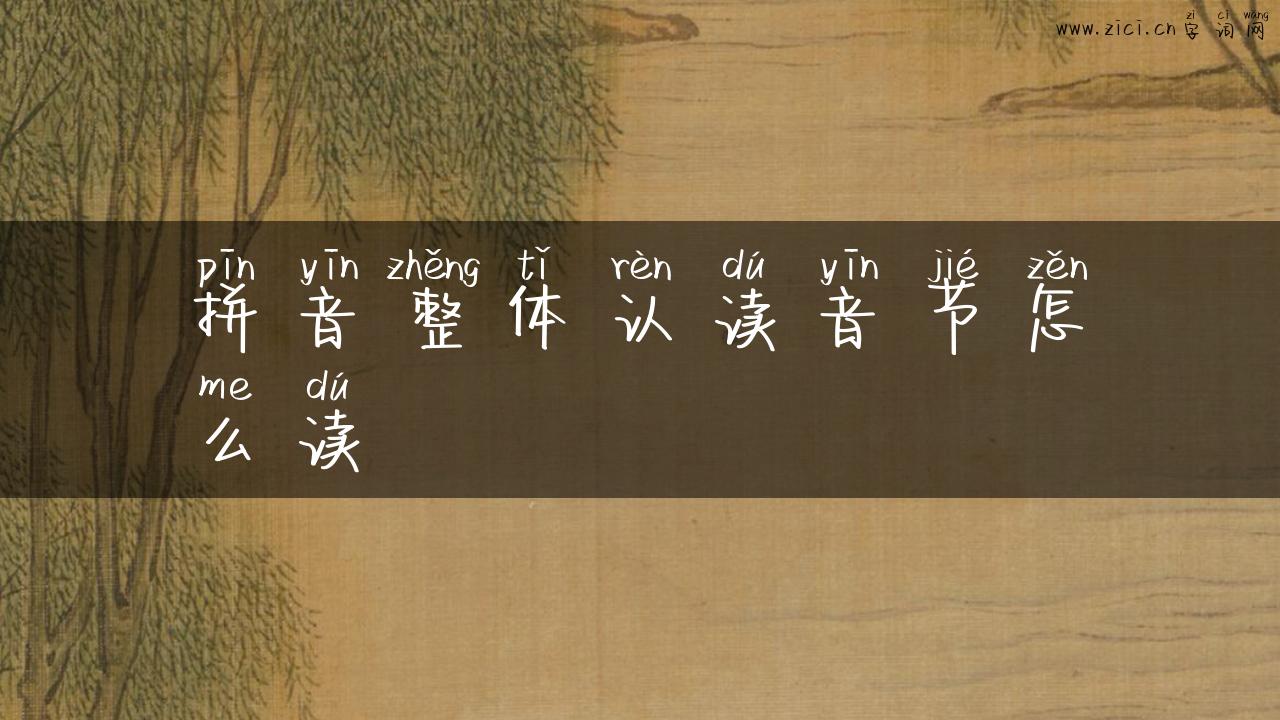 zì cí wǎng
www.zici.cn 字 词 网
pīn yīn zhěng tǐ rèn dú yīn jié zěn
拼 音 整 体 认 读 音 节 怎
me dú
么 读